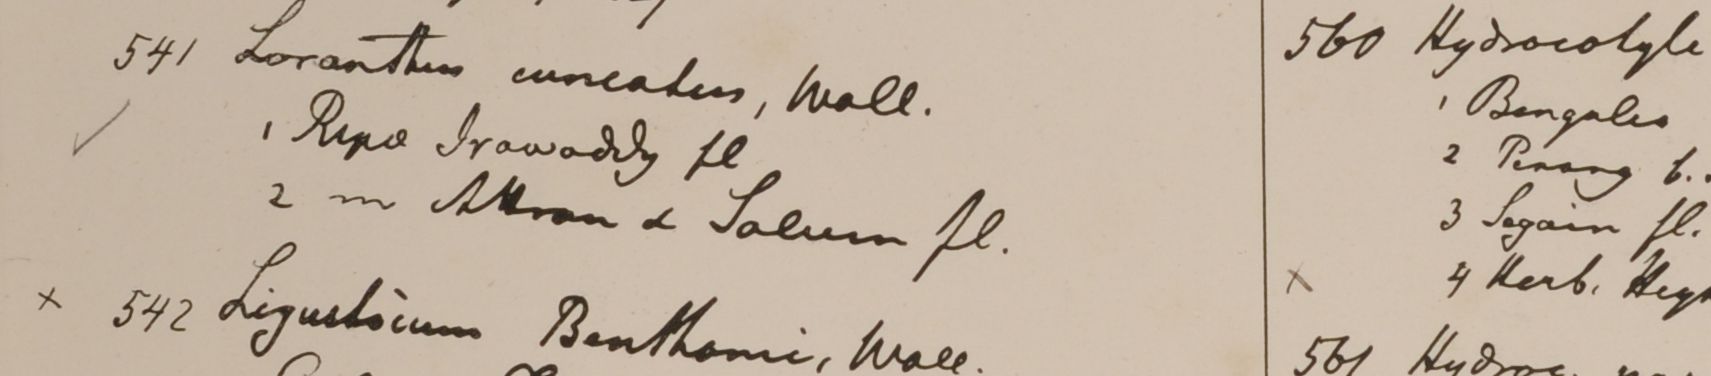 541 Loranthus cuneatus, Wall.
1 Ripa Irawaddy fl
2 m Attran & Salum fl.
× 542 Ligusticum Benthami, Wall.
560 Hydrocotyle
1 Bengalia
2 Penang b.
3 Segain fl.
× 4 Herb. Heyn
561 Hydroc.